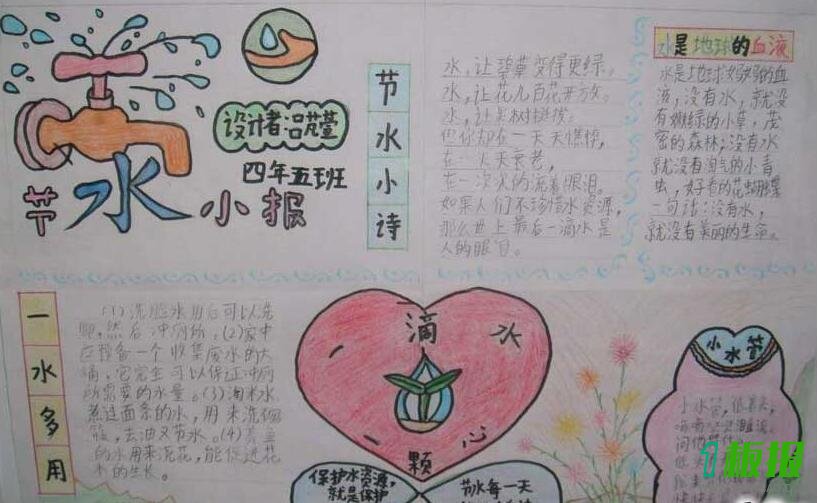 节水小报
设计者:吕芃萱
四年五班
节水小诗
水,让碧草变得更绿。
水,让花儿百花开放。
水,让果树挺拔;
但你却在一天天憔悴,
在一天天衰老,
在一次次的流着眼泪。
如果人们不珍惜水资源,
那么世上最后一滴水是
人的眼泪。
水是地球的血液
水是地球妈妈的血
液,没有水,就没
有嫩绿的小草,茂
密的森林;没有水
就没有淘气的小青
虫,好看的花蝴蝶
一句话:没有水,
就没有美丽的生命。
一水多用
(1)洗脸水用后可以洗
脚,然后冲厕所。(2)家中
应预备一个收集废水的大
桶,它完全可以保证冲厕
所需要的水量。(3)淘米水、
煮过面条的水,用来洗碗
筷,去油又节水。(4)养鱼
的水用来浇花,能促进花
木的生长。
一滴水
一颗心
保护水资源,
就是保护
节水每一天
小水管
小水管,低着头,
板报